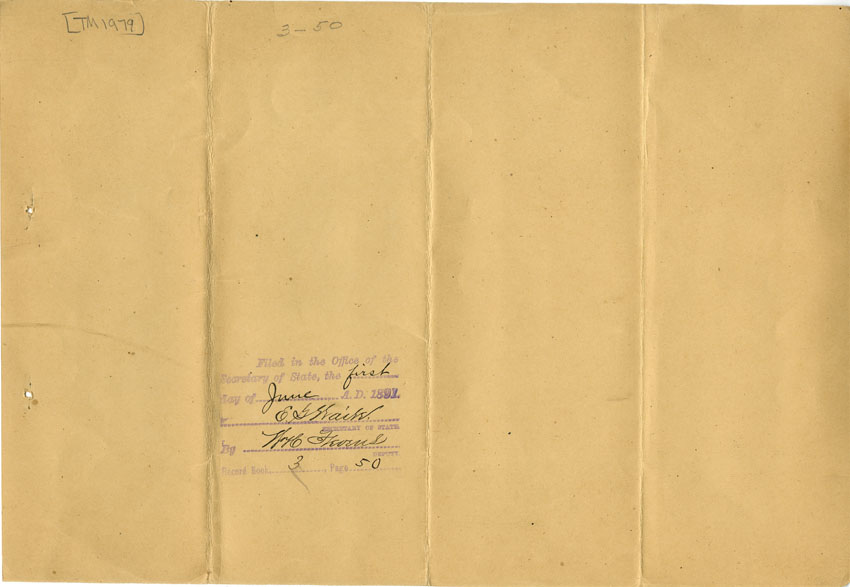 [TM 1979]
3-50
Filed in the Office of the
Secretary of State, the first
day of June A.D. 1891.
E G Waite
SECRETARY OF STATE
By W H C
DEPUTY.
Record Book 3, Page 50